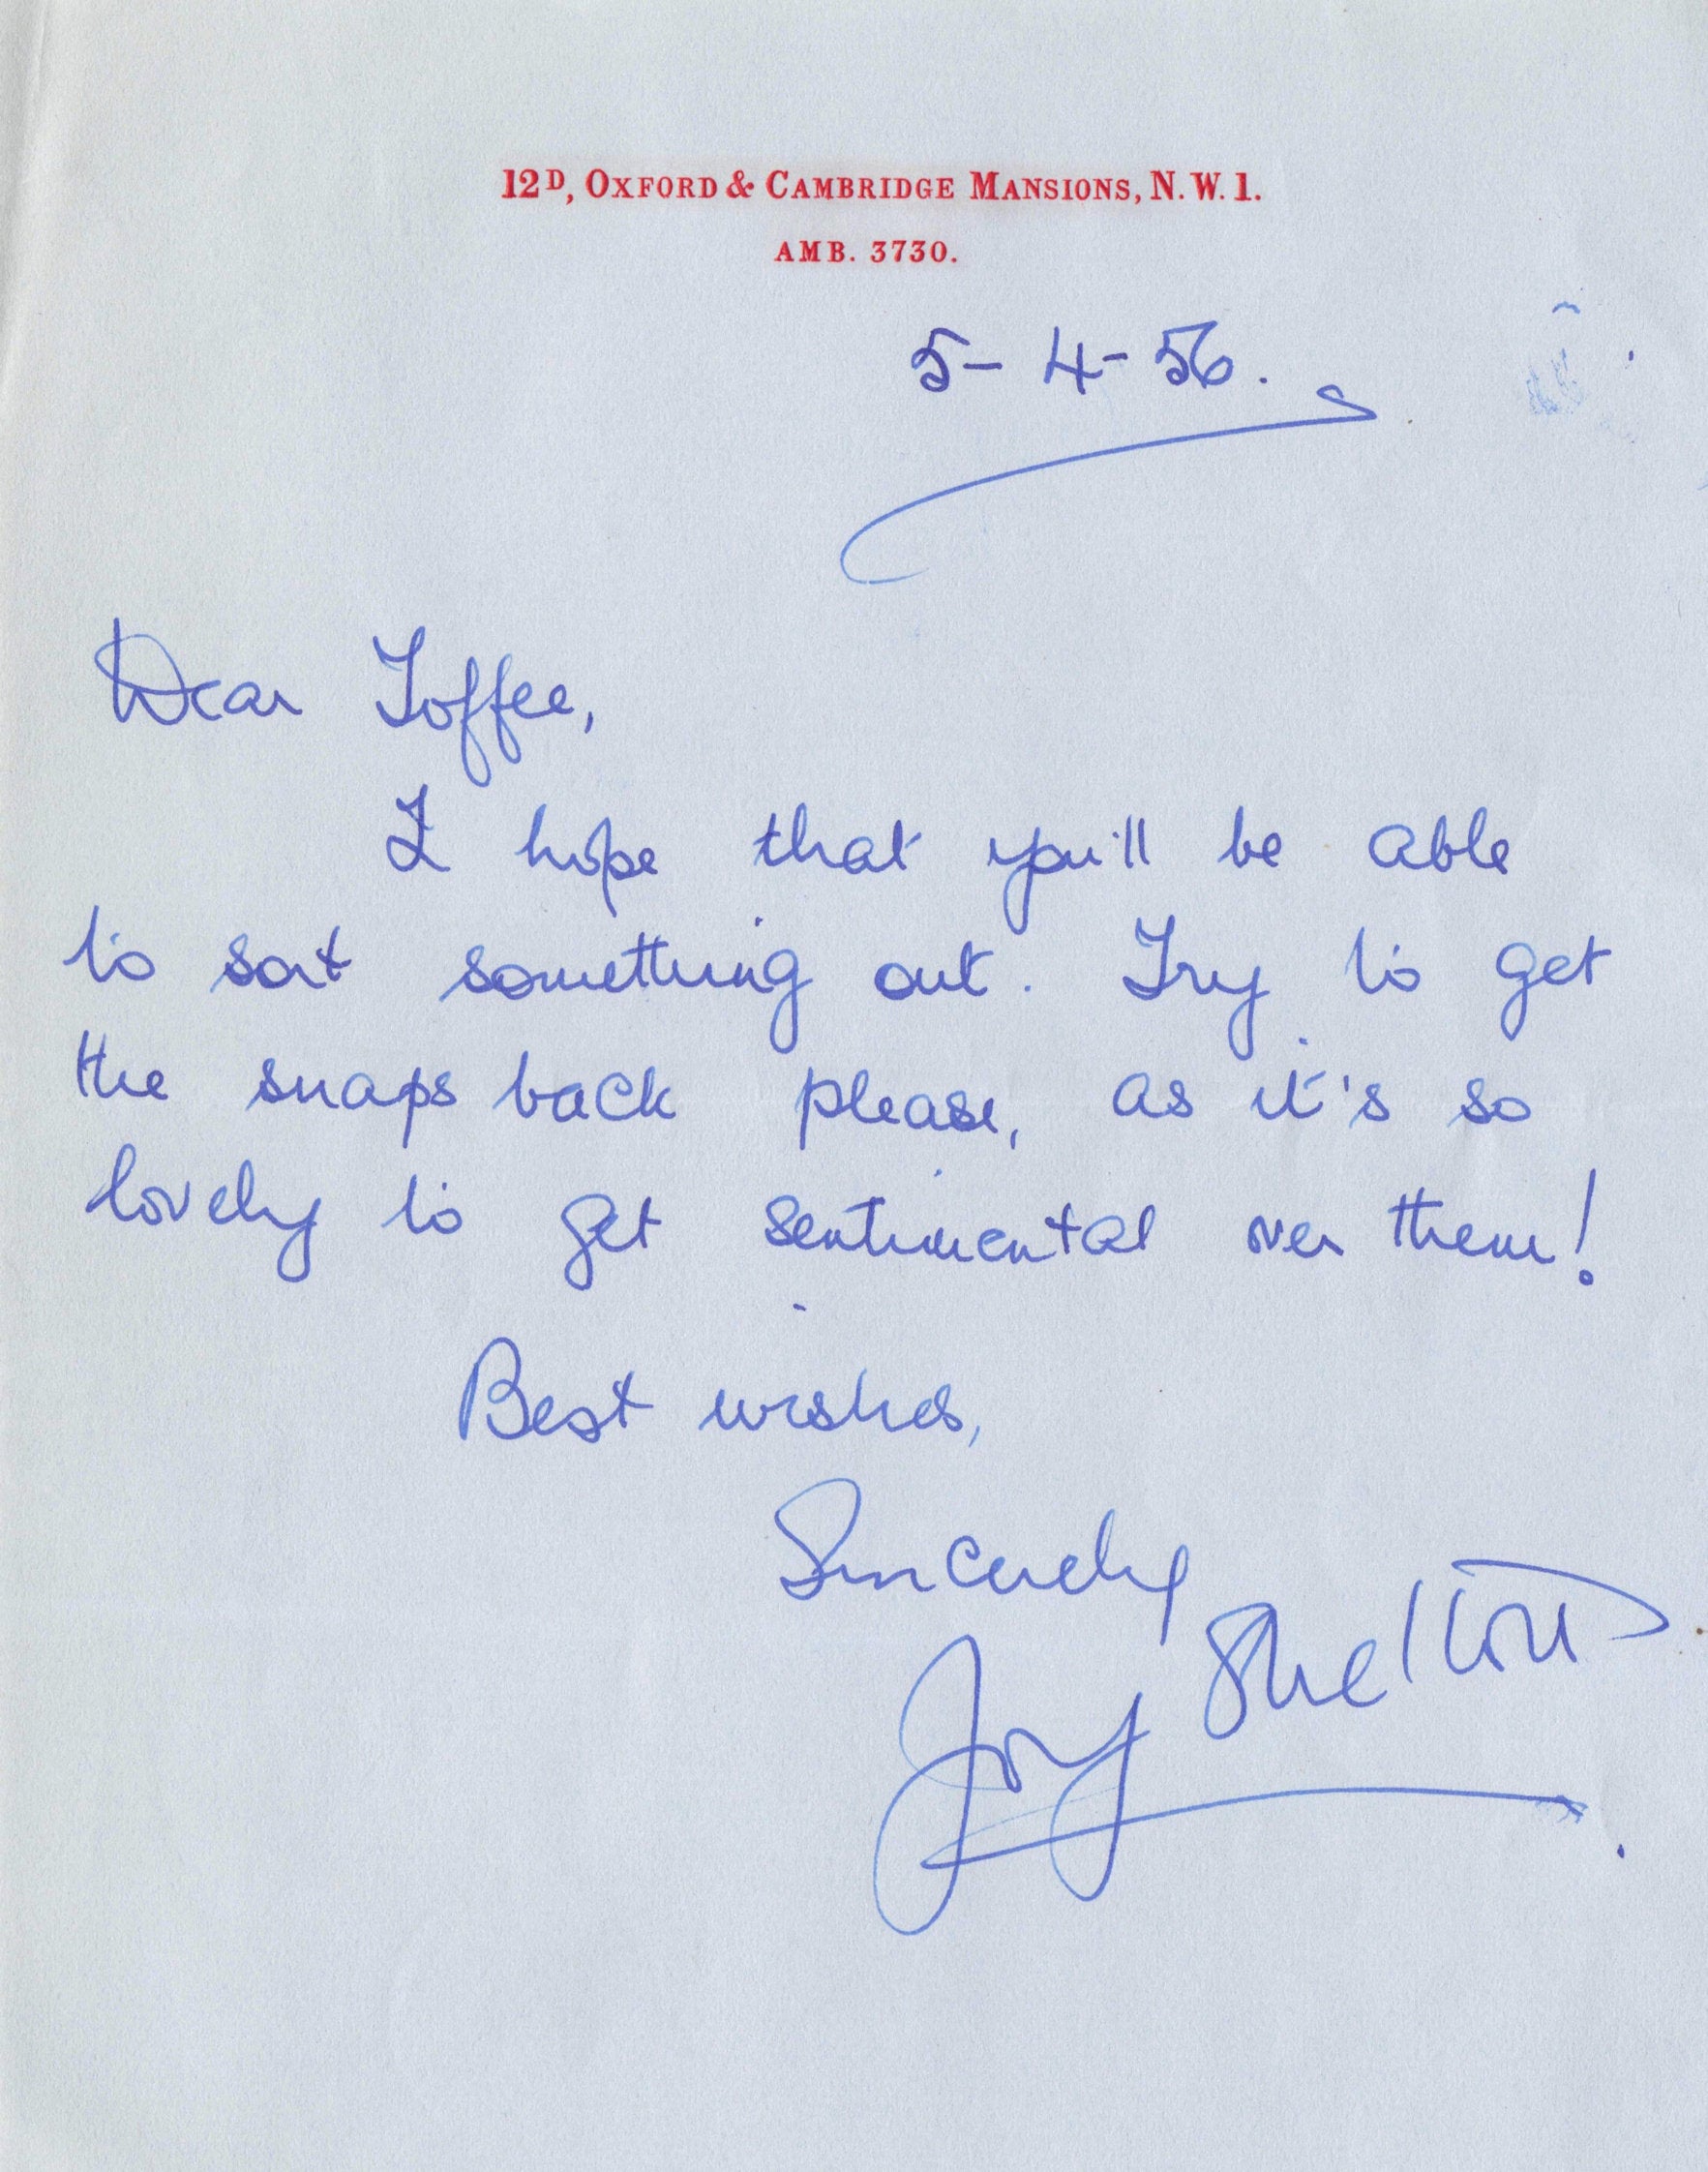 12D, OXFORD & CAMBRIDGE MANSIONS, N.W.1.
AMB. 3730.
5-4-56.
Dear Toffee,
I hope that you'll be able
to sort something out. Try to get
the snaps back please, as it's so
lovely to get sentimental over them!
Best wishes,
Sincerely
Joy Shelton